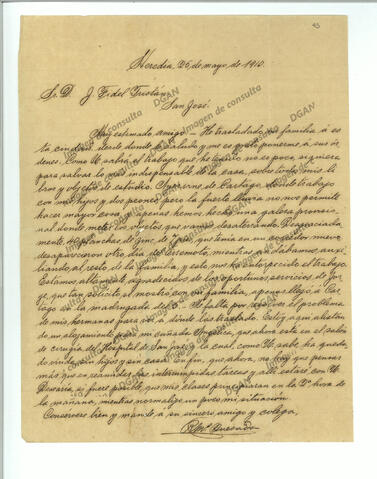 93
Heredia 26 de mayo de 1910.
Sr. D. J. Fidel Tristán
San José.
Muy estimado amigo: He trasladado mi familia a es
ta ciudad, desde donde le saludo y me es grato ponerme a sus ór
denes. Como U. sabrá el trabajo que he tenido no es poco siquiera
para salvar lo más indispensable de la casa, sobre todo mis li
bros y objetos de estudio. Ayer vine de Cartago donde trabajo
con mis hijos y dos peones pero la fuerte lluvia no nos permite
hacer mayor cosa y apenas hemos hecho una galera provisio
nal donde meter los objetos que vamos desenterrando. Desgraciada
mente, planchas de zinc que tenía en un corredor nuevo
desaparecieron otro día del terremoto, mientras andábamos auxi
liando al resto de la familia, y esto nos ha entorpecido el trabajo.
Estamos altamente agradecidos de los oportunos servicios de
que tan solícito se mostró con mi familia, apenas llegó a Car
tago en la madrugada del 5. Me falta por resolver el problema
de mis hermanas para ver a donde las traslado. Estoy aquí alistan
do un alojamiento para mi cuñada que ahora está en el salón
de cirugía del Hospital de San José, la cual, como U. sabe ha queda
do viuda, sin hijos y sin casa. En fin, que ahora, no hay que pensar
más que en reanudar las interrumpidas tareas y allí estaré con U.
Desearía, si fuere posible que mis clases principiaran en la 2ª hora de
la mañana, mientras normalizo un poco mi situación.
Consérvese bien y mande a su sincero amigo y colega,
Quesada
Imagen de consulta
DGAN